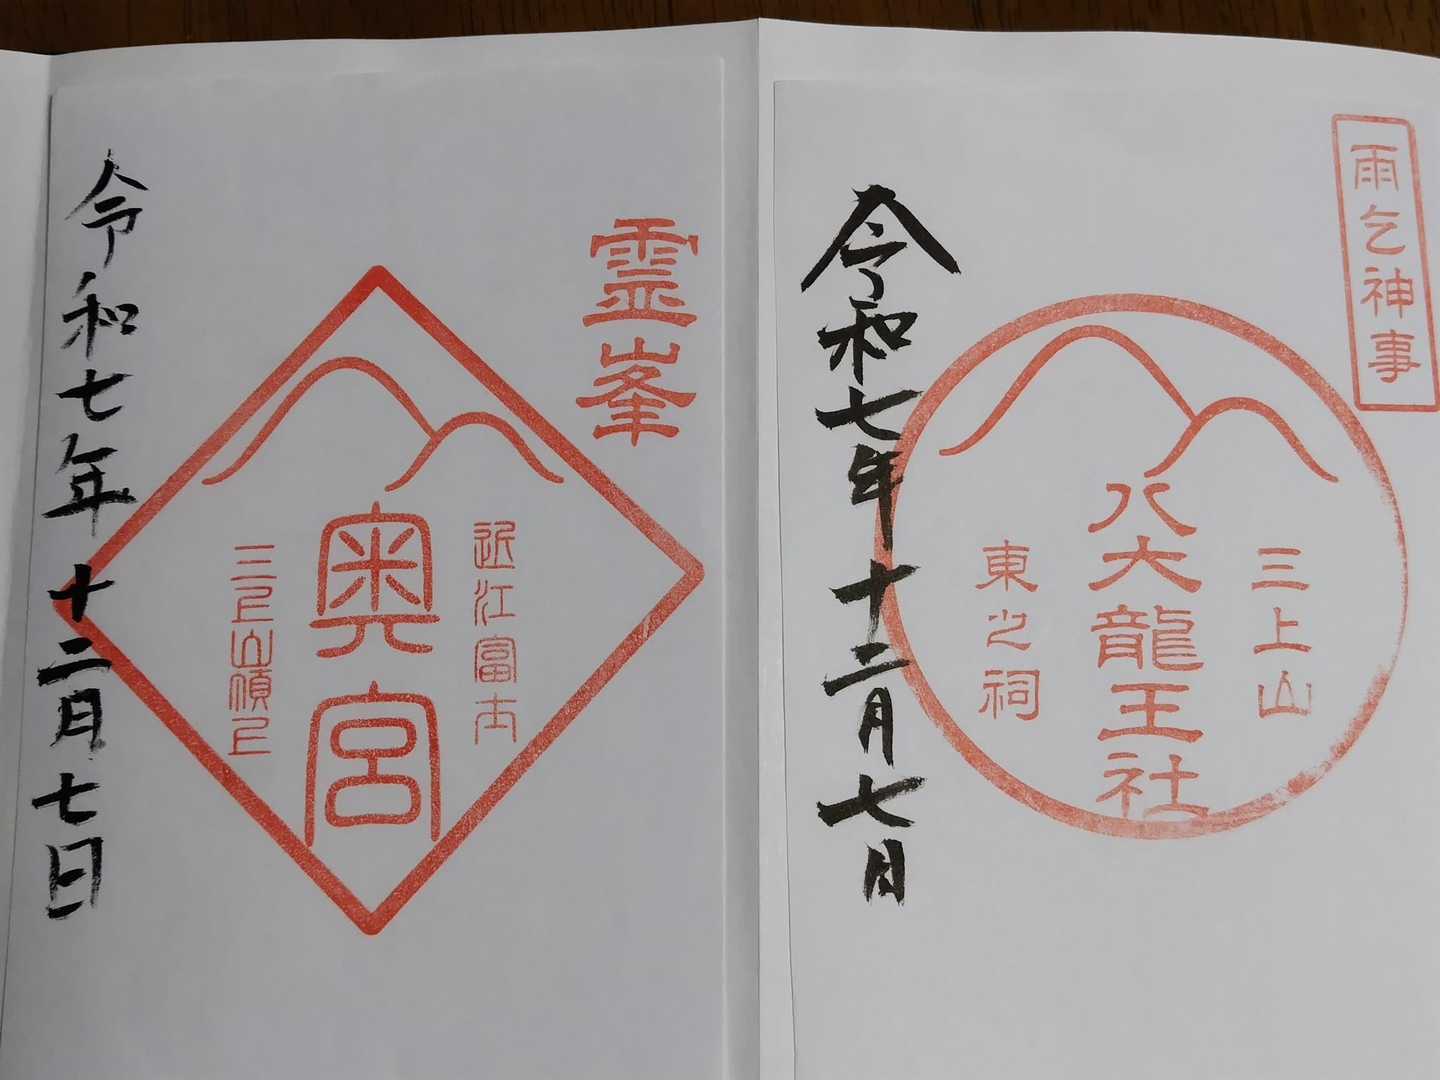 雨乞神事
三上山
八大龍王社
東之祠
令和七年十二月七日
霊峯
近江富士
奥宮
三上山頂上
令和七年十二月七日